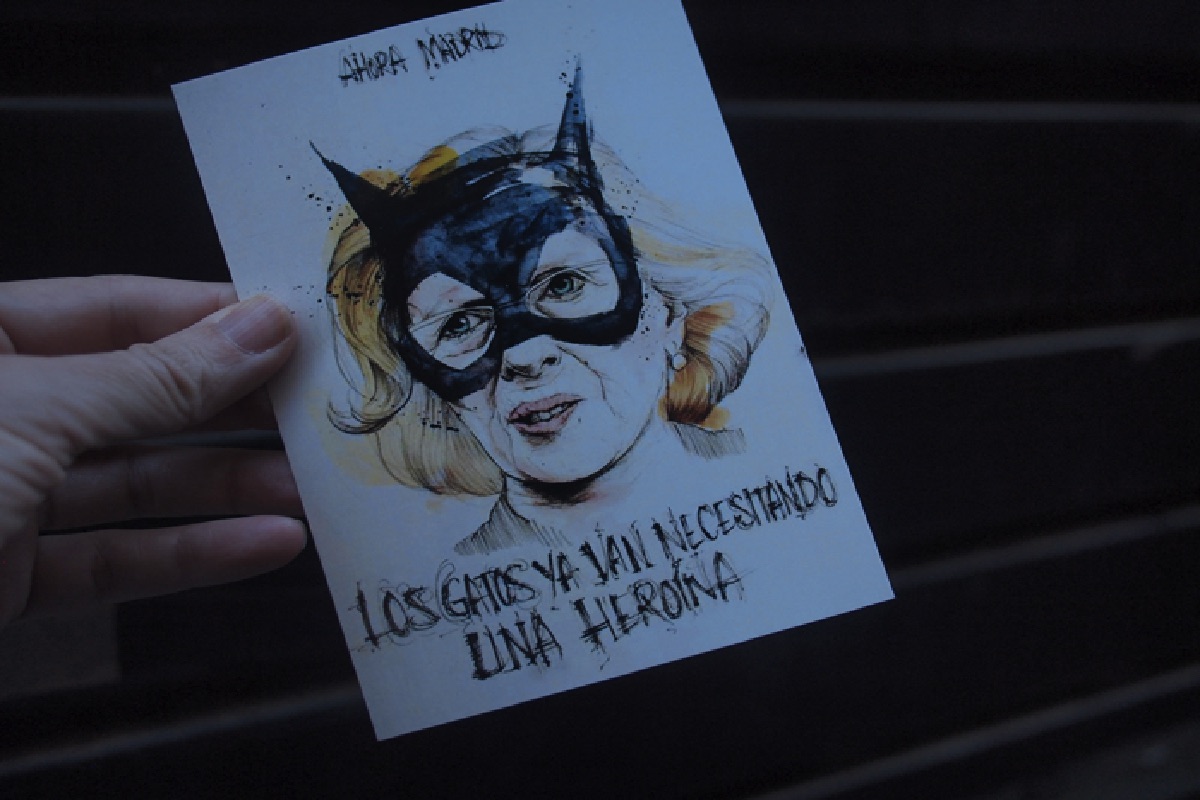 AHORA MADRID
LOS GATOS YA VAN NECESITANDO
UNA HEROÍNA